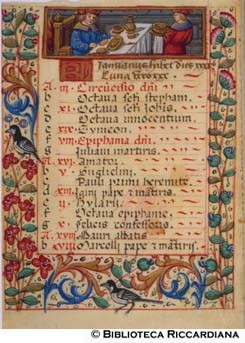 Januarius habet dies xxxi
Luna vero xxx.
A. iii Circūcisio dñi
b Octava scti stephani.
c xi Octava scti iohīs
d Octava innocentium
e xix Symeon.
f viii Epiphania dñi.
g Iuliani martiris.
A xvi Amatoꝛ
b v Guglielmi
c Pauli primi heremite
d xiii Igini pape z martiris.
e ii Hylarii
f Octava epiphanie.
g x Felicis confessoris
A Mauri abbatis
b xviii Marcelli pape z martiris:
© BIBLIOTECA RICCARDIANA